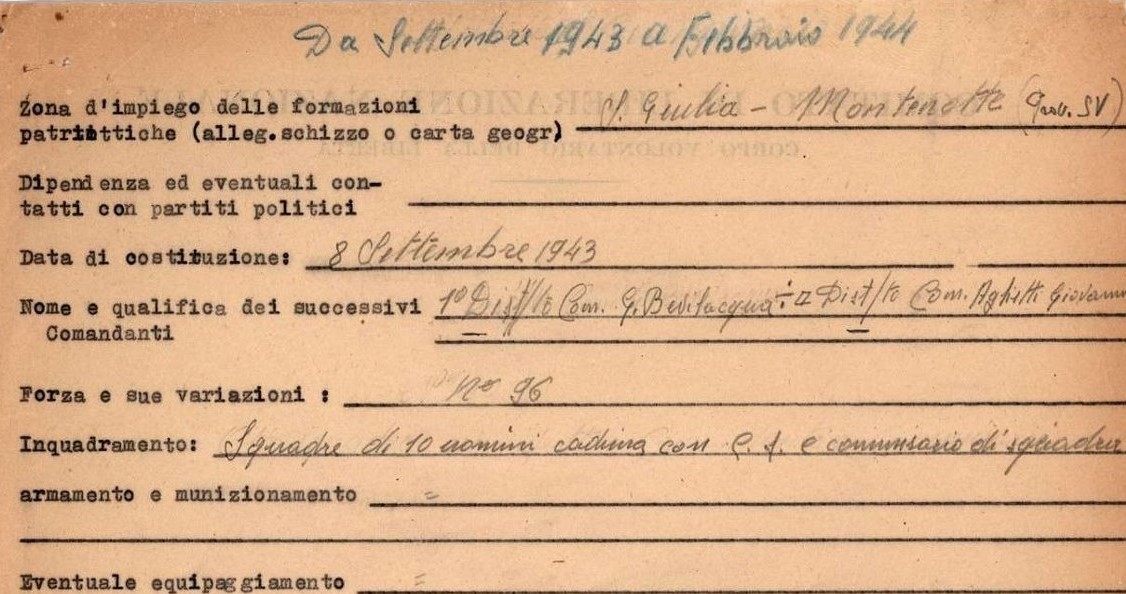 Da Settembre 1943 a Febbraio 1944
Zona d'impiego delle formazioni
patriottiche (alleg.schizzo o carta geogr) S. Giulia - Montenotte (Prov. SV)
Dipendenza ed eventuali con-
tatti con partiti politici
Data di costituzione: 8 Settembre 1943
Nome e qualifica dei successivi 1º Dist/to Com. G. Bevilacqua ÷ II Dist/to Com. Aghetti Giovanni
Comandanti
Forza e sue variazioni : nº 96
Inquadramento: Squadre di 10 uomini cadauna con C. S. e commissario di squadra
armamento e munizionamento =
Eventuale equipaggiamento =